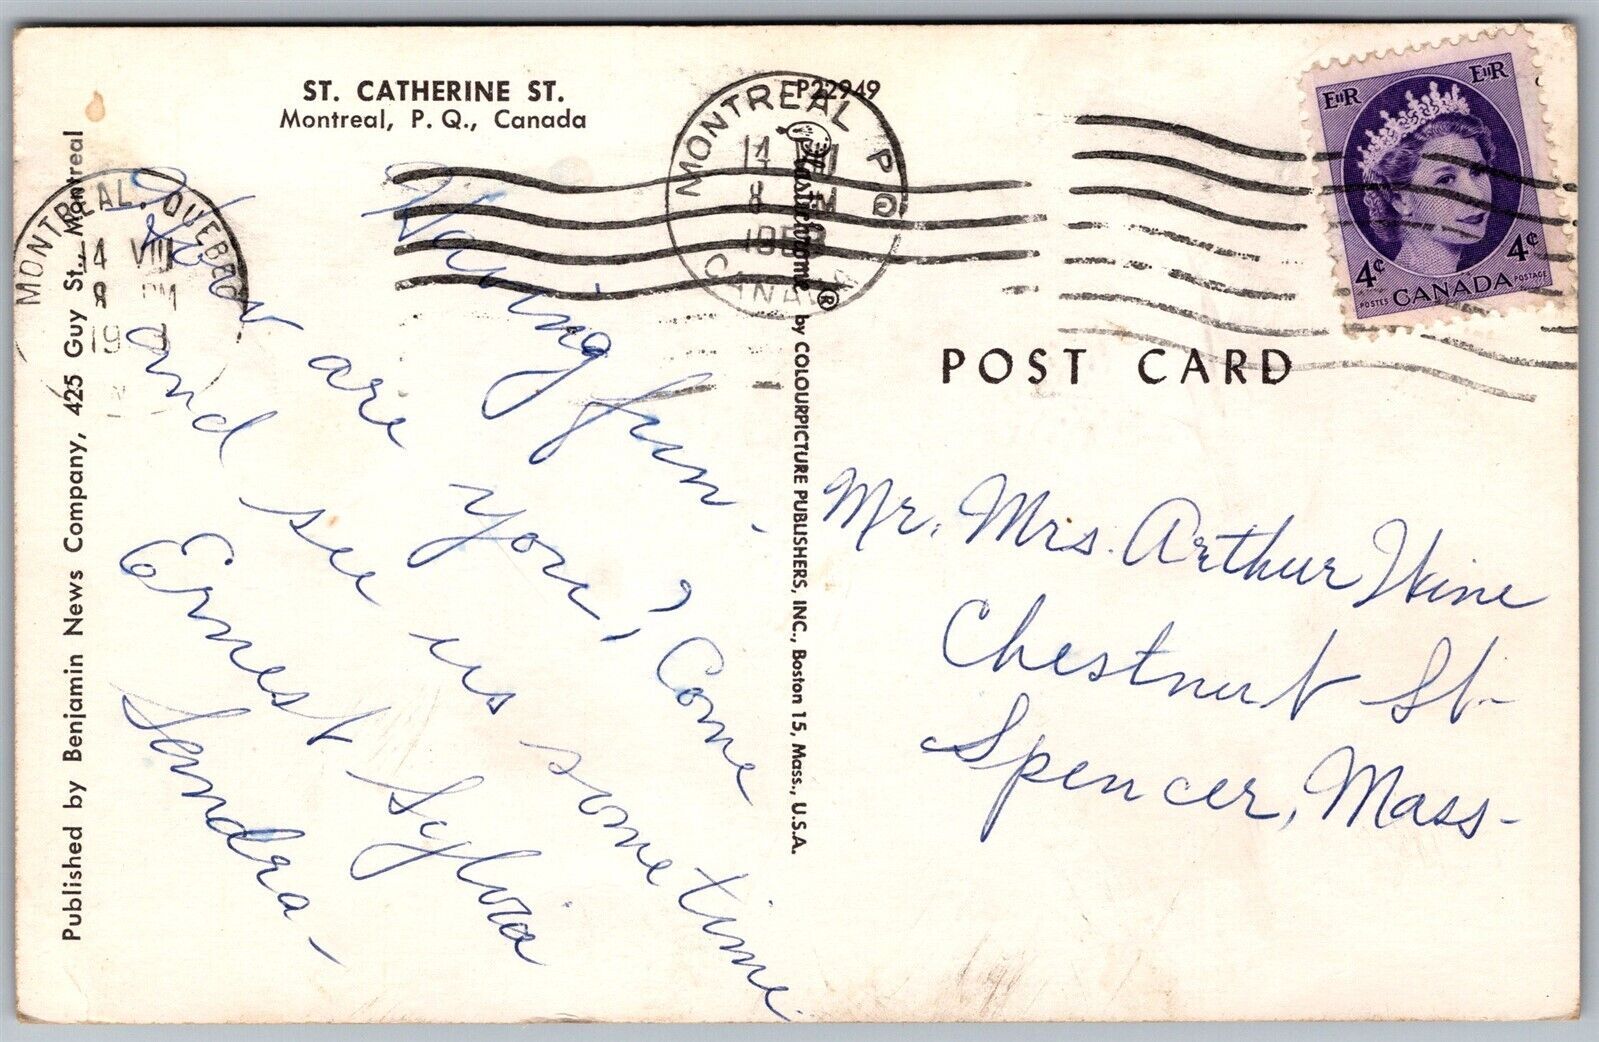 ST. CATHERINE ST.
Montreal, P. Q., Canada
P22949
Having fun-
How are you? Come
and see us sometime
Ernest Sylvia
Sandra-
Published by Benjamin News Company, 425 Guy St., Montreal
MONTREAL, QUEBEC
14 VIII
8 PM
MONTREAL P Q
14
8 PM
CANADA
Plastichrome ® by COLOURPICTURE PUBLISHERS, INC., Boston 15, Mass., U.S.A.
EIIR EIIR
4¢ 4¢
POSTES CANADA POSTAGE
POST CARD
Mr. Mrs. Arthur
Chestnut St-
Spencer, Mass-